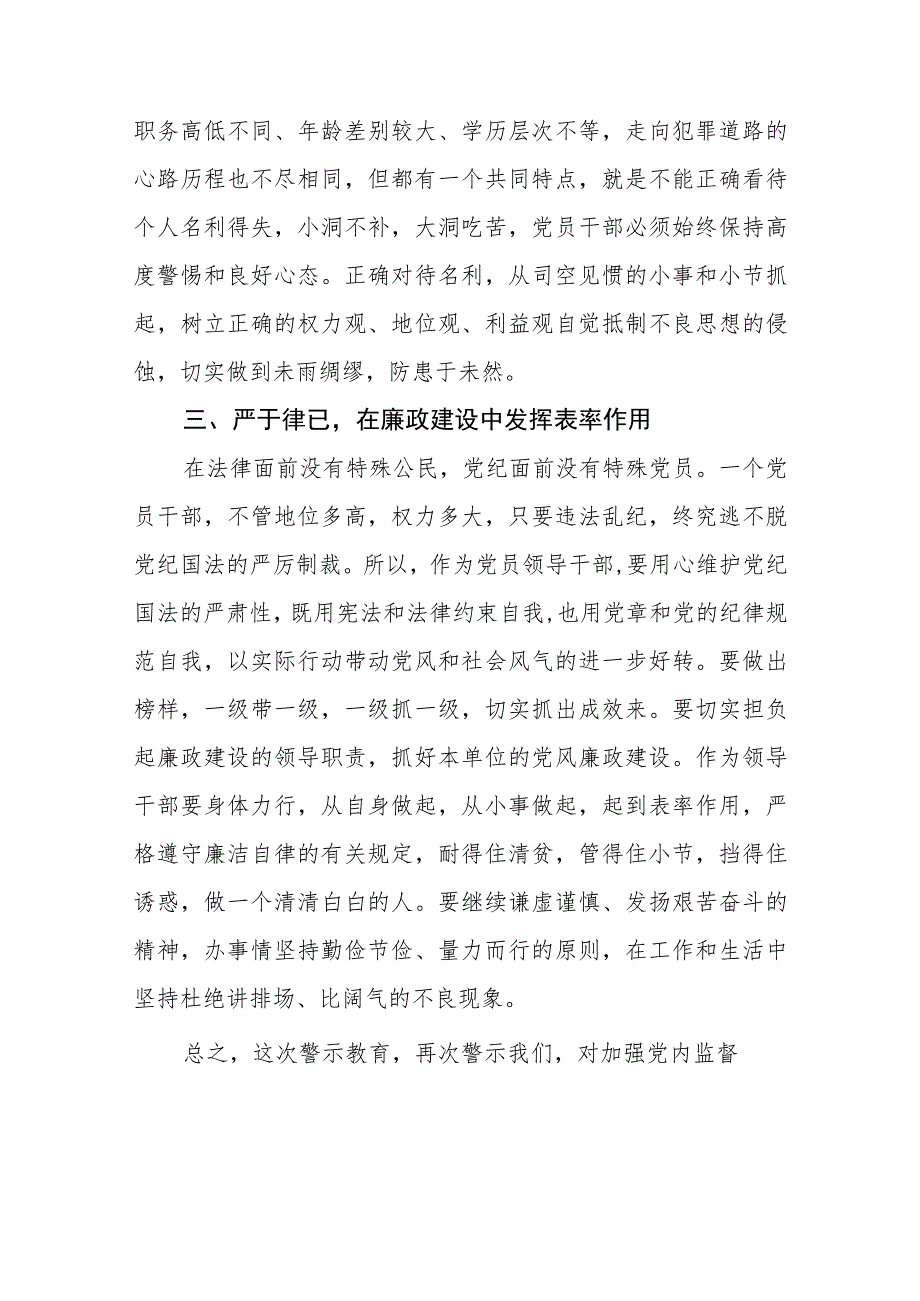 职务高低不同、年龄差别较大、学历层次不等，走向犯罪道路的
心路历程也不尽相同，但都有一个共同特点，就是不能正确看待
个人名利得失，小洞不补，大洞吃苦，党员干部必须始终保持高
度警惕和良好心态。正确对待名利，从司空见惯的小事和小节抓
起，树立正确的权力观、地位观、利益观自觉抵制不良思想的侵
蚀，切实做到未雨绸缪，防患于未然。
三、严于律已，在廉政建设中发挥表率作用
在法律面前没有特殊公民，党纪面前没有特殊党员。一个党
员干部，不管地位多高，权力多大，只要违法乱纪，终究逃不脱
党纪国法的严厉制裁。所以，作为党员领导干部,要用心维护党纪
国法的严肃性，既用宪法和法律约束自我,也用党章和党的纪律规
范自我，以实际行动带动党风和社会风气的进一步好转。要做出
榜样，一级带一级，一级抓一级，切实抓出成效来。要切实担负
起廉政建设的领导职责，抓好本单位的党风廉政建设。作为领导
干部要身体力行，从自身做起，从小事做起，起到表率作用，严
格遵守廉洁自律的有关规定，耐得住清贫，管得住小节，挡得住
诱惑，做一个清清白白的人。要继续谦虚谨慎、发扬艰苦奋斗的
精神，办事情坚持勤俭节俭、量力而行的原则，在工作和生活中
坚持杜绝讲排场、比阔气的不良现象。
总之，这次警示教育，再次警示我们，对加强党内监督